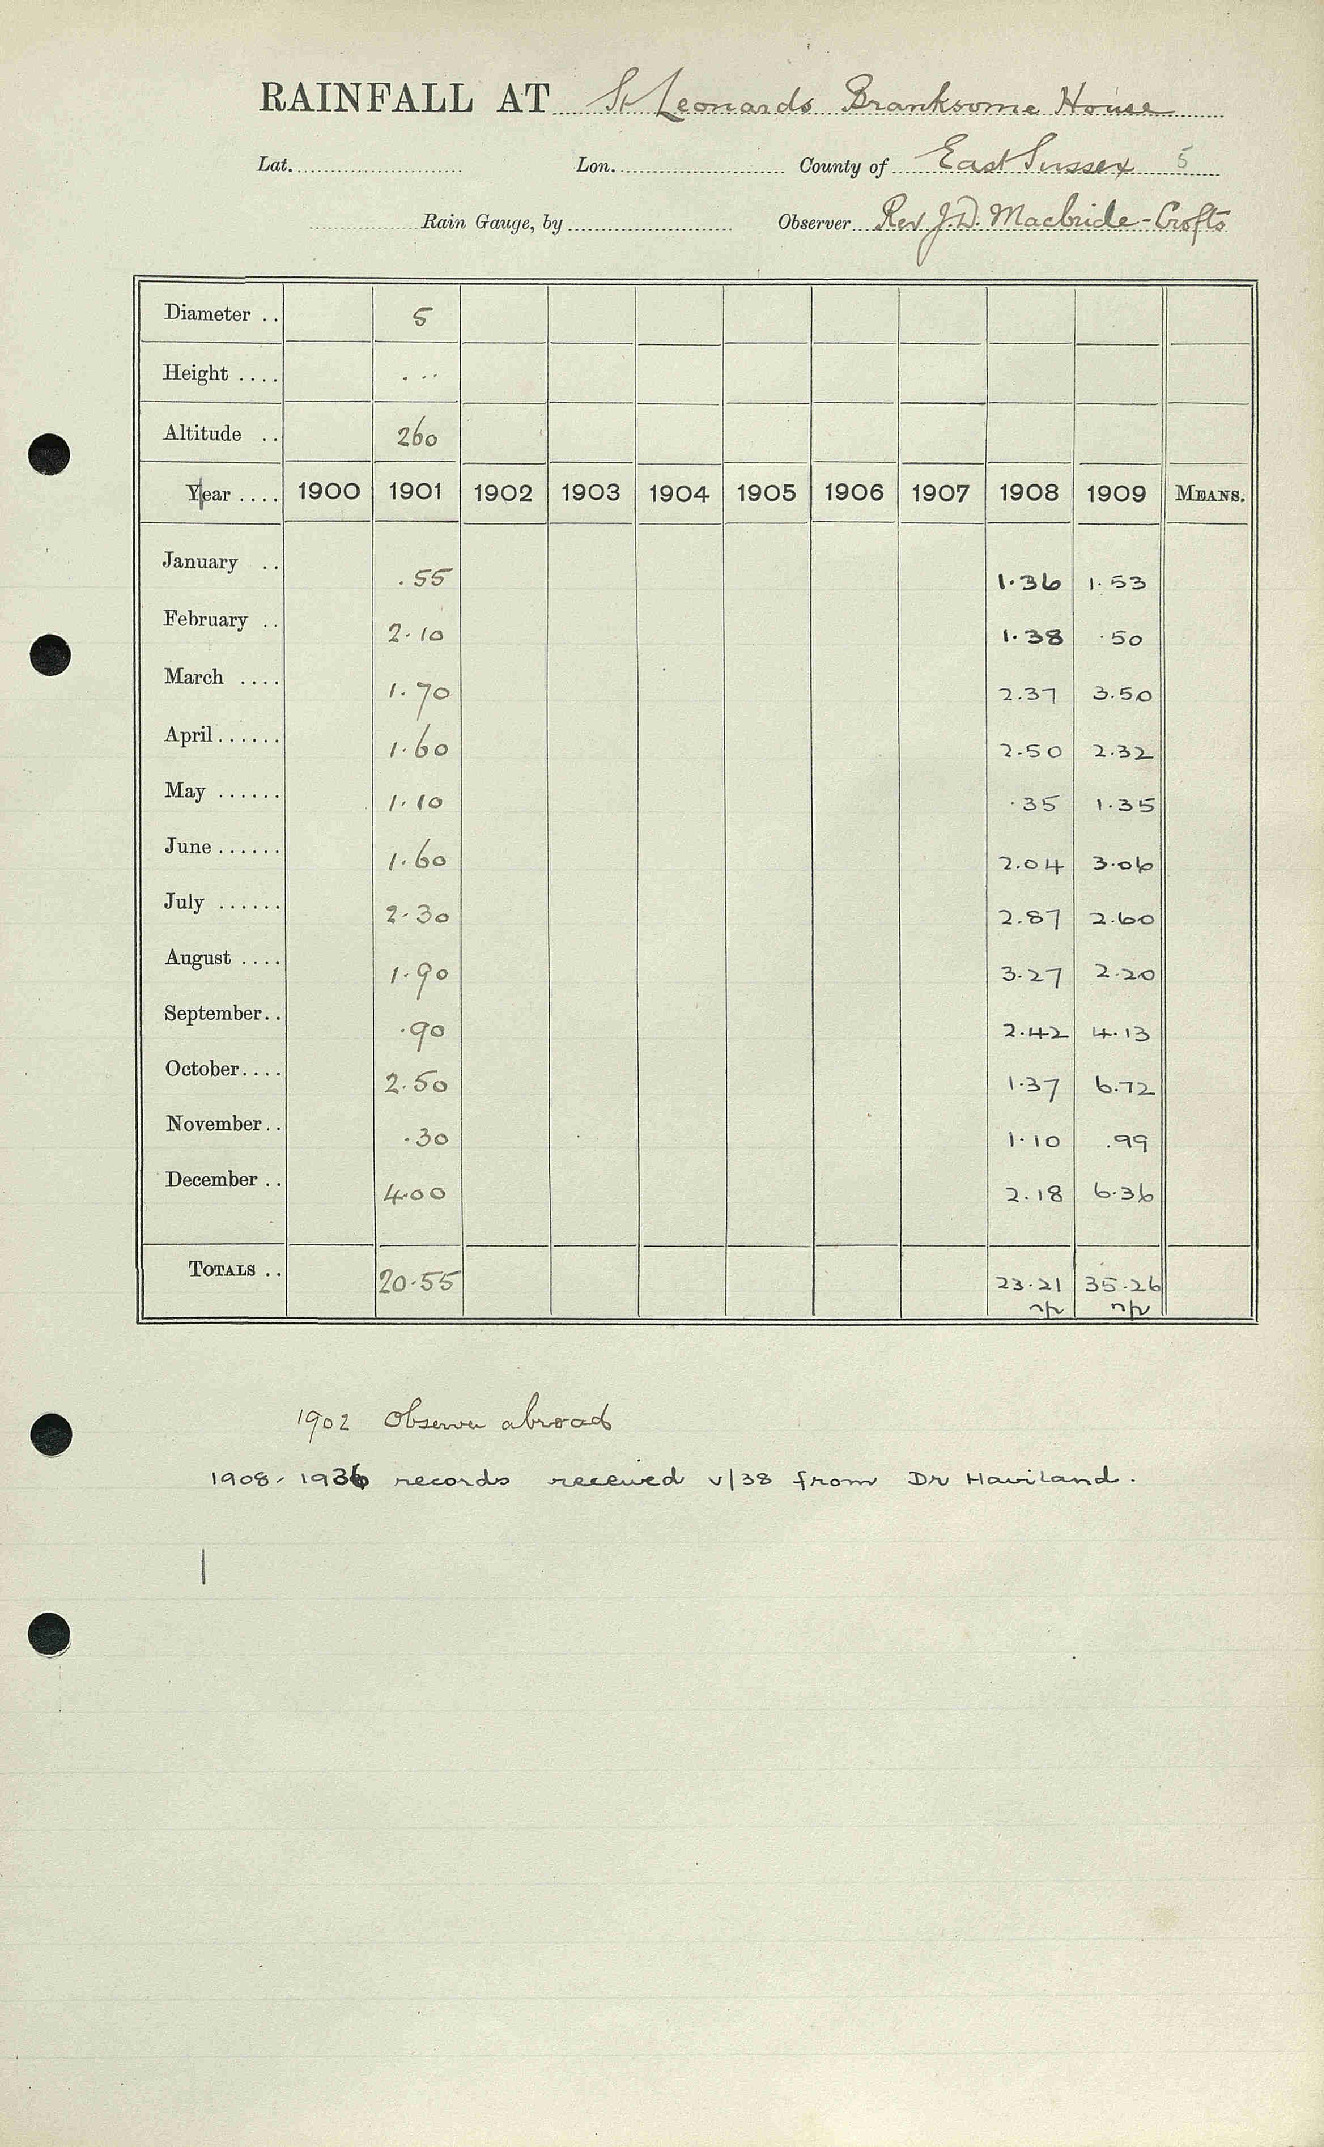 RAINFALL AT St Leonards Branksome House
Lat. Lon. County of East Sussex 5
Rain Gauge, by Observer Rev J.D. Macbride-Crofts
Diameter .. 5
Height .... . ..
Altitude .. 260
Year .... 1900 1901 1902 1903 1904 1905 1906 1907 1908 1909 MEANS.
January .. .55 1.36 1.53
February .. 2.10 1.38 .50
March .... 1.70 2.37 3.50
April...... 1.60 2.50 2.32
May ...... 1.10 .35 1.35
June...... 1.60 2.04 3.06
July ...... 2.30 2.87 2.60
August .... 1.90 3.27 2.20
September.. .90 2.42 4.13
October.... 2.50 1.37 6.72
November.. .30 1.10 .99
December .. 4.00 2.18 6.36
TOTALS .. 20.55 23.21 35.26
1902 Observer abroad
1908-1936 records received v/38 from Dr Haviland.